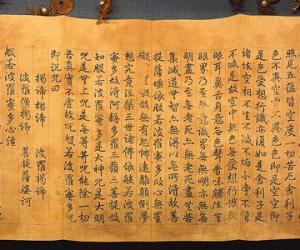 照見五蘊皆空度一切
色不異空空不異色色即是空空即
是色受想行識亦復如是舍利子是
諸法空相不生不滅不垢不淨不增
不減是故空中無色無受想行識無
眼耳鼻舌身意無色聲香味觸法無
眼界乃至無意識界無無明亦無無
明盡乃至無老死亦無老死盡無苦
集滅道無智亦無得以無所得故菩
提薩埵依般若波羅蜜多故心無罣
礙無罣礙故無有恐怖遠離顛倒夢
想究竟涅槃三世諸佛依般若波羅
蜜多故得阿耨多羅三藐三菩提故
知般若波羅蜜多是大神咒是大明
咒是無上咒是無等等咒能除一切
苦真實不虛故說般若波羅蜜多咒
即說咒曰
揭諦揭諦 波羅揭諦
波羅僧揭諦 菩提薩婆訶
般若波羅蜜多心經